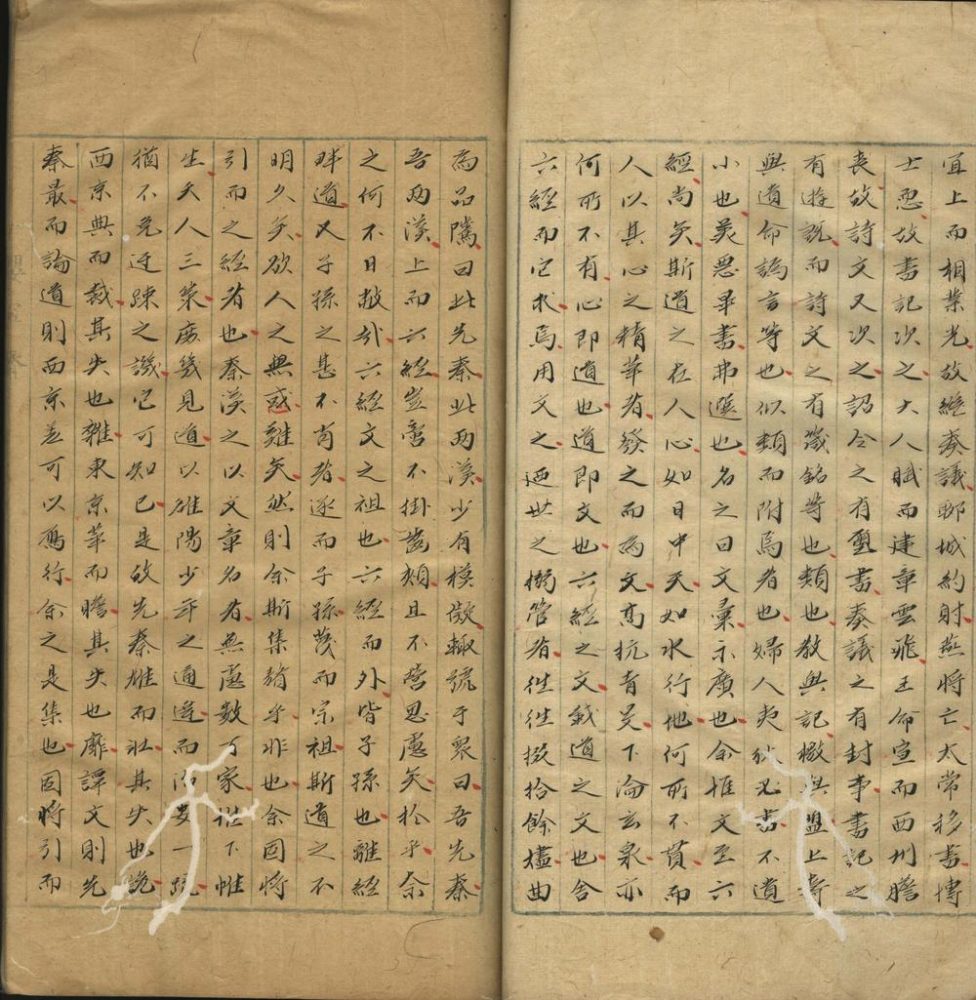 宜上而相業光故經奏議聊城約射燕將亡太常移書博
士忍故書記次之大人賦而建章雲飛王命宣而西州膽
喪故詩文又次之詔令之有璽書奏議之有封事書記之
有遊說而詩文之有箴銘等也類也教與記檄與盟上壽
與道命謠言等也似類而附焉者也婦人夷狄必書不遺
小也美惡畢書弗遴也名之曰文彙示廣也余惟文至六
經尚矣斯道之在人心如日中天如水行地何所不貫而
人以其心之精華者發之而為文高抗青旻下淪玄泉亦
何所不有心即道也道即文也六經之文載道之文也舍
六經而它求焉用文之迺世之搦管者往往掇拾餘橀曲
為品騭曰此先秦此兩漢少有模倣輒號于衆曰吾先秦
吾兩漢上而六經豈啻不掛齒頰且不營思慮矣於乎余
之何不日披哉六經文之祖也六經而外皆子孫也離經
畔道又子孫之甚不肖者逐而子孫茂而宗祖斯道之不
明久矣欲人之無惑難矣然則余斯集贅乎非也余固將
引而之經者也秦漢之以文章名者無慮數丁家惟下帷
生天人三策庶幾見道以雒陽少年之通達而治安一疏
猶不免迂踈之譏它可知已是故先秦雄而壯其失也詭
西京典而裁其失也雜東京華而贍其失也靡譚文則先
秦最而論道則西京差可以鴈行余之是集也固將引而